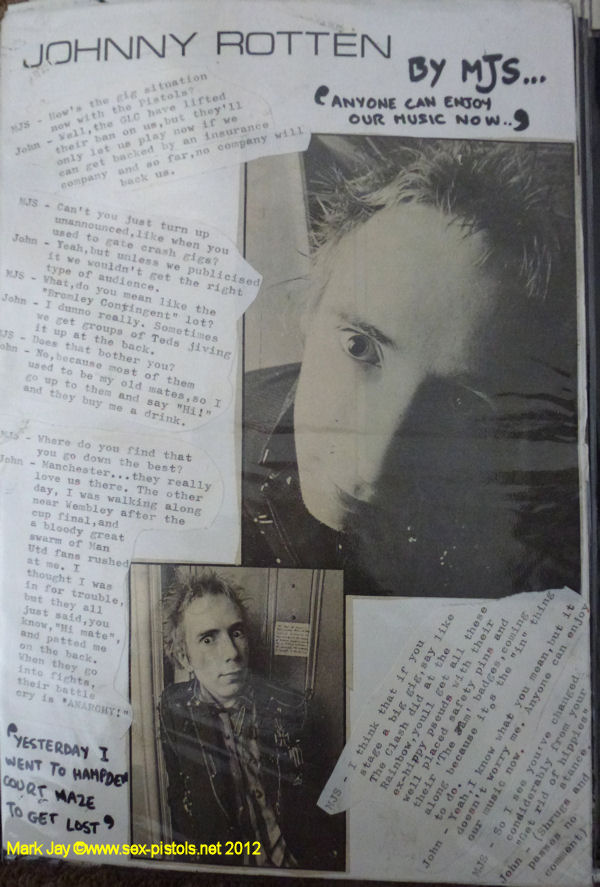 JOHNNY ROTTEN
BY MJS...
❛ANYONE CAN ENJOY
OUR MUSIC NOW..❜
MJS - How's the gig situation
now with the Pistols?
John - Well,the GLC have lifted
their ban on us,but they'll
only let us play now if we
can get backed by an insurance
company and so far,no company will
back us.
MJS - Can't you just turn up
unannounced,like when you
used to gate crash gigs?
John - Yeah,but unless we publicised
it we wouldn't get the right
type of audience.
MJS - What,do you mean like the
"Bromley Contingent" lot?
John - I dunno really. Sometimes
we get groups of Teds jiving
it up at the back.
MJS - Does that bother you?
John - No,because most of them
used to be my old mates,so I
go up to them and say "Hi!"
and they buy me a drink.
MJS - Where do you find that
you go down the best?
John - Manchester...they really
love us there. The other
day, I was walking along
near Wembley after the
cup final,and
a bloody great
swarm of Man
Utd fans rushed
at me. I
thought I was
in for trouble,
but they all
just said,you
know,"Hi mate",
and patted me
on the back.
When they go
into fights,
their battle
cry is "ANARCHY!"
❛YESTERDAY I
WENT TO HAMPDEN
COURT MAZE
TO GET LOST❜
MJS - I think that if you
stage a big gig,say like
The Clash did at the
Rainbow,youll get all these
ex-hippy pseuds with their
well placed safety pins and
their 'The Jam' badges,coming
along because it,s the "in" thing
to do.
John - Yeah,I know what you mean,but it
doesn't worry me. Anyone can enjoy
our music now.
MJS - So I see you've changed
condiderably from your
"Get rid of hippies"
stance.
John - (Shrugs and
passes no
comment)
Mark Jay ©www.sex-pistols.net 2012